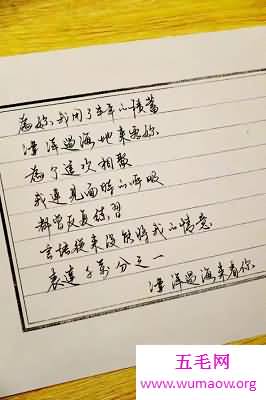 为你 我用了半年的积蓄
漂洋过海地来看你
为了这次相聚
我连见面时的呼吸
都曾反复练习
言语从来没能将我的情意
表达千万分之一
漂洋过海来看你
五毛网
www.wumaow.org